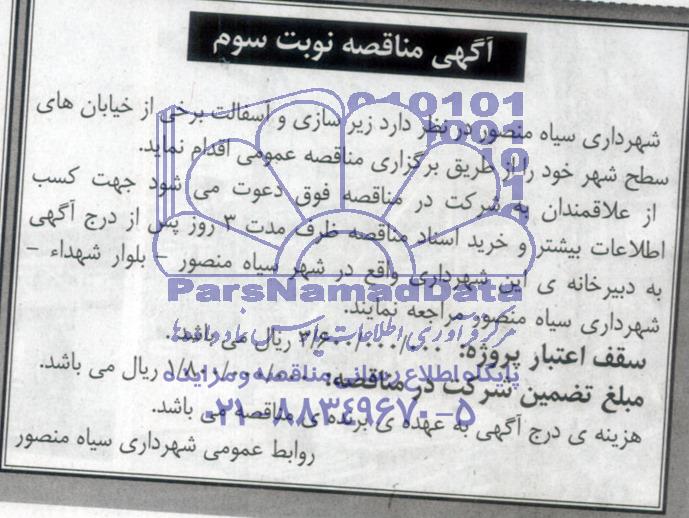 آگهی مناقصه نوبت سوم
شهرداری سیاه منصور در نظر دارد زیر سازی و آسفالت برخی از خیابان های
سطح شهر خود را از طریق برگزاری مناقصه عمومی اقدام نماید.
از علاقمندان به شرکت در مناقصه فوق دعوت می شود جهت کسب
اطلاعات بیشتر و خرید اسناد مناقصه ظرف مدت ۳ روز پس از درج آگهی
به دبیرخانه ی این شهرداری واقع در شهر سیاه منصور – بلوار شهداء –
شهرداری سیاه منصور مراجعه نمایند.
سقف اعتبار پروژه: ریال می باشد.
مبلغ تضمین شرکت در مناقصه: ریال می باشد.
هزینه ی درج آگهی به عهده ی برنده ی مناقصه می باشد.
روابط عمومی شهرداری سیاه منصور
ParsNamadData
مرکز فرآوری اطلاعات پارس نماد داده ها
پایگاه اطلاع رسانی مناقصه و مزایده
۰۲۱-۸۸۳۴۹۶۷۰-۵